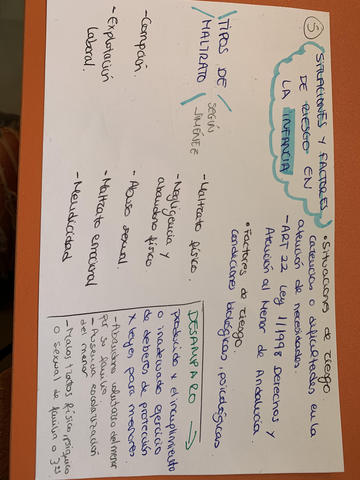 ⑤ SITUACIONES Y FACTORES
DE RIESGO EN
LA INFANCIA
• Situaciones de riesgo
carencias o dificultades en la
atención de necesidades.
- ART 22 Ley 1/1998 Derechos y
Atención al Menor de Andalucía.
• Factores de riesgo.
condiciones biológicas, psicológicas
TIPOS DE
MALTRATO
SEGÚN
JIMÉNEZ
- Maltrato físico.
- Negligencia y
abandono físico
- Abuso sexual.
- Maltrato emocional
- Mendicidad
- Corrupción.
- Explotación
Laboral.
DESAMPARO →
producido x el incumplimiento
o inadecuado ejercicio
de deberes de protección
x leyes para menores
- Abandono voluntario del menor
por su familia.
- Ausencia escolarización
del menor
- Malos tratos físico, psíquico
o sexual de familia o 3ªs